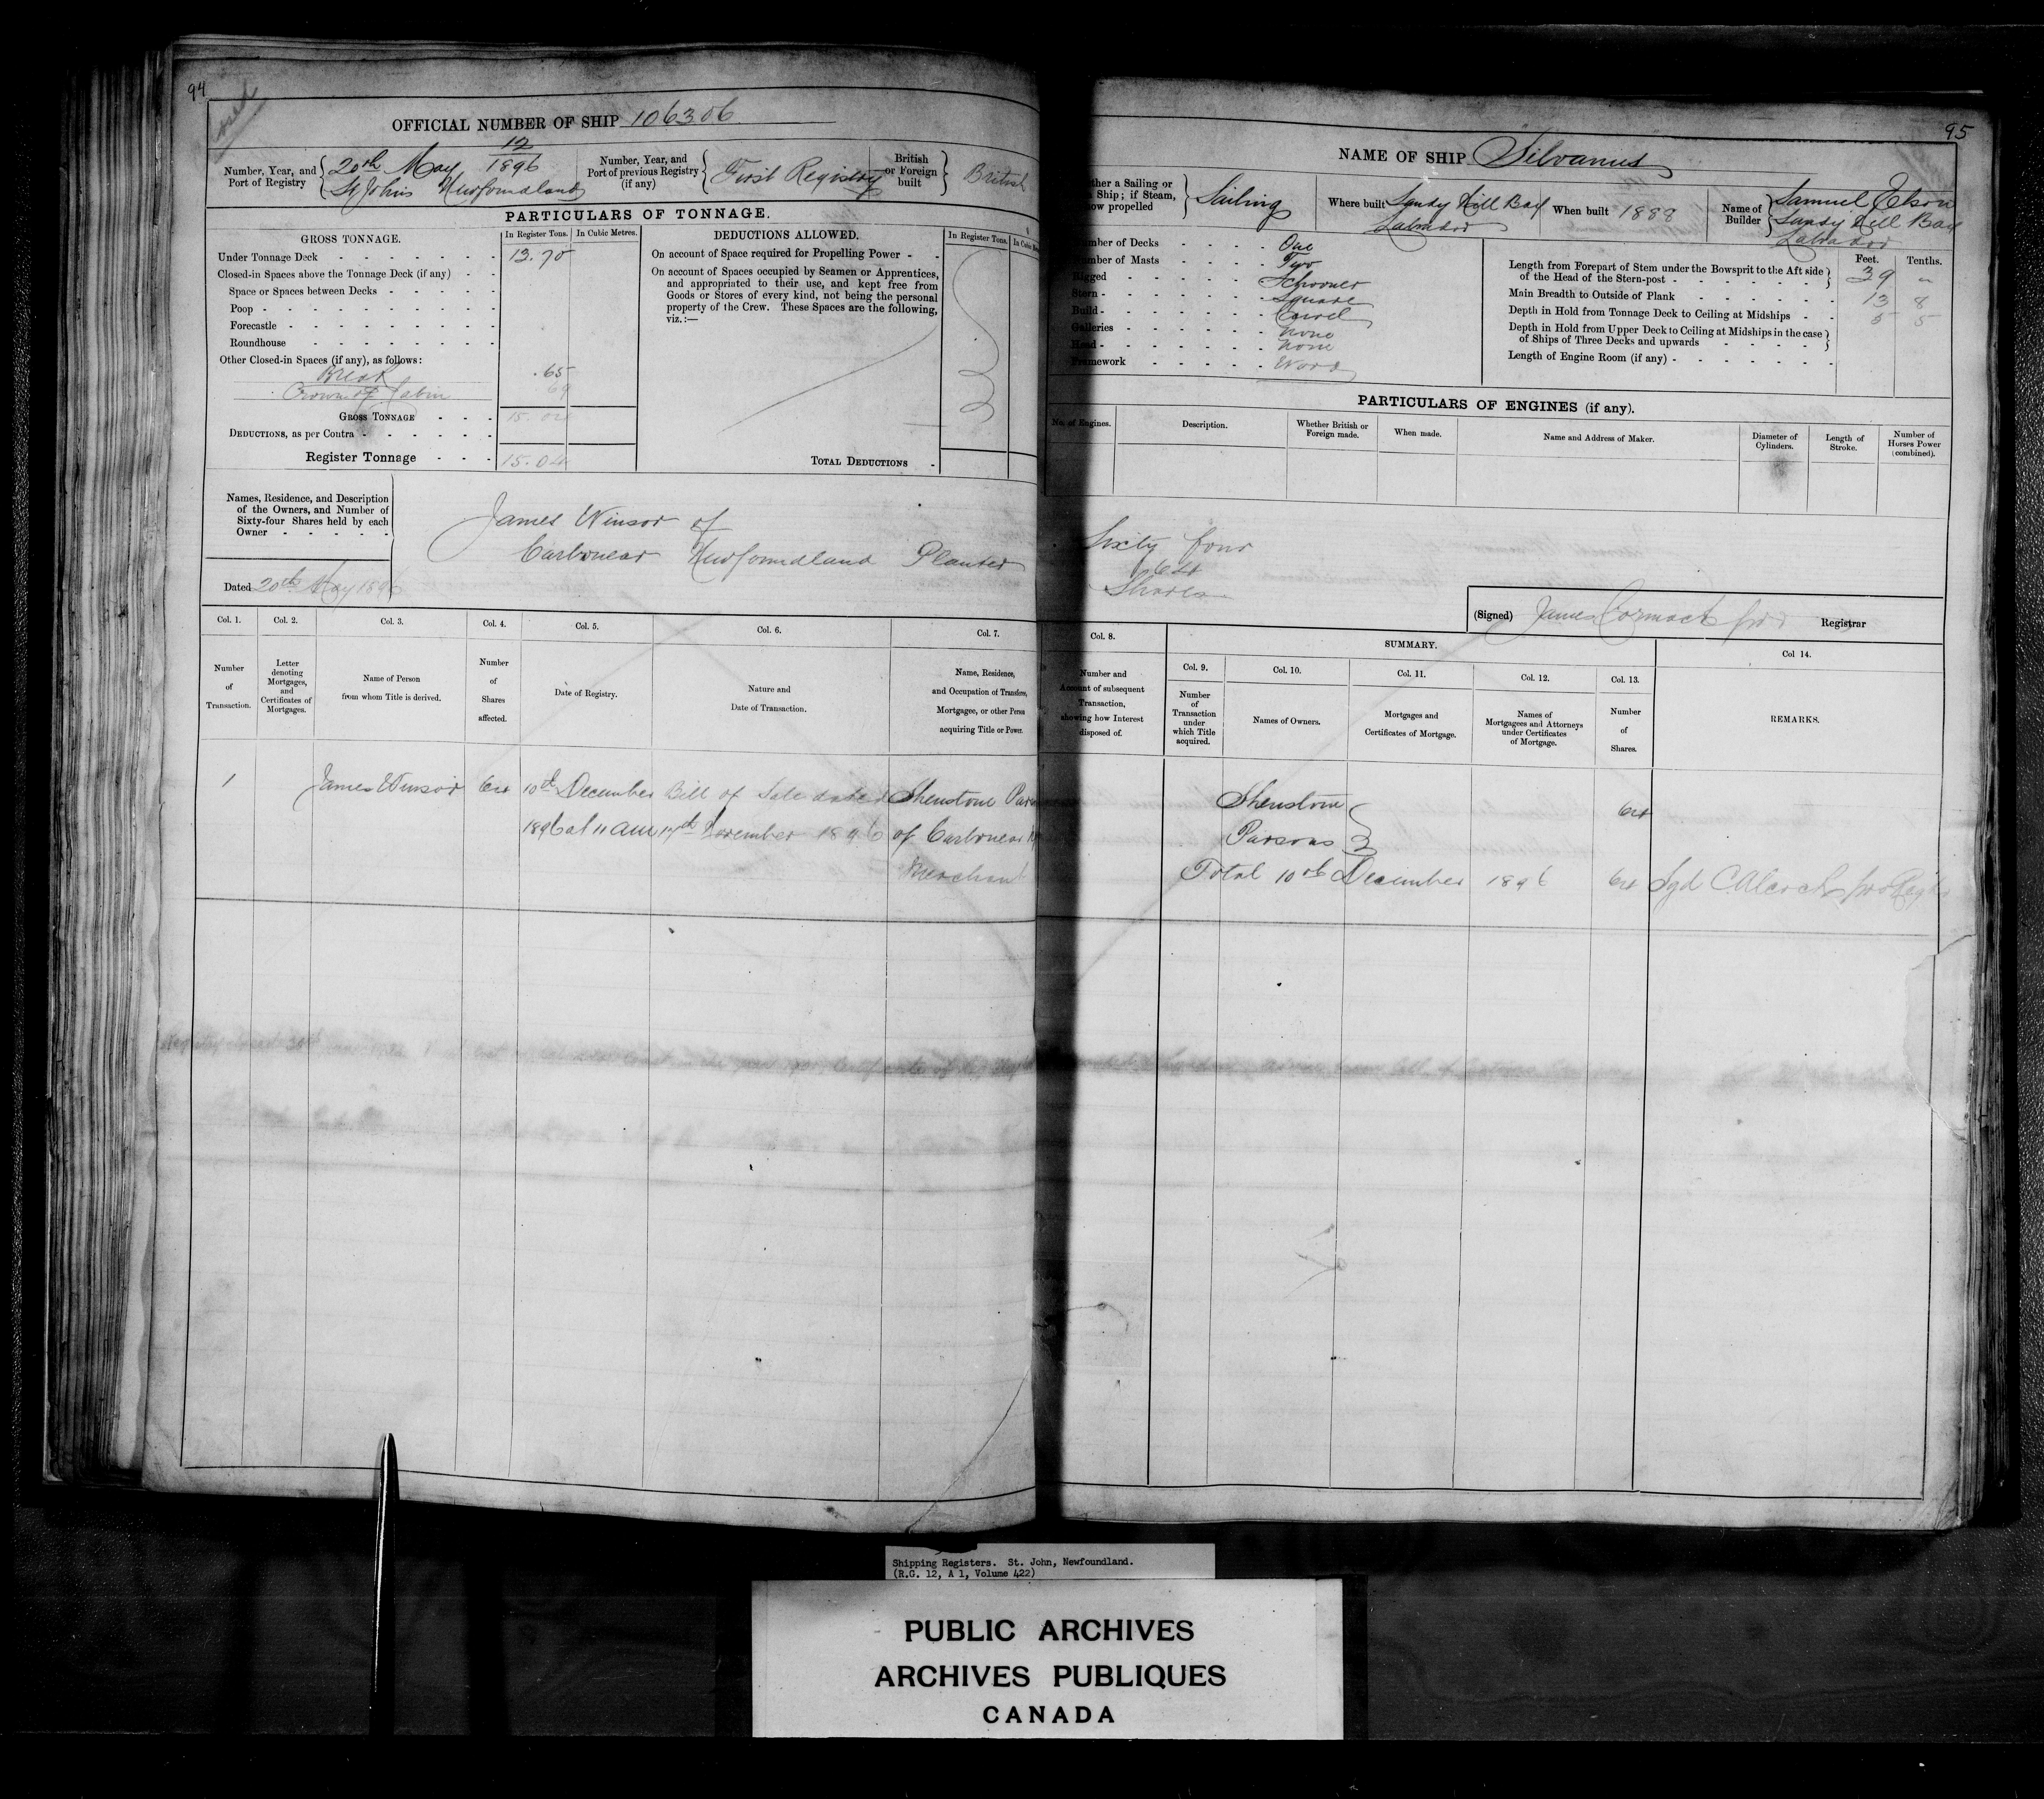 94
OFFICIAL NUMBER OF SHIP 106306
Number, Year, and Port of Registry
12
20th May 1896
St Johns Newfoundland
Number, Year, and Port of previous Registry (if any)
First Registry
British or Foreign built
British
PARTICULARS OF TONNAGE.
GROSS TONNAGE.
In Register Tons.
In Cubic Metres.
Under Tonnage Deck 13.70
Closed-in Spaces above the Tonnage Deck (if any)
Space or Spaces between Decks
Poop
Forecastle
Roundhouse
Other Closed-in Spaces (if any), as follows:
Break .65
Crown of Cabin 69
GROSS TONNAGE 15.04
DEDUCTIONS, as per Contra
Register Tonnage 15.04
DEDUCTIONS ALLOWED.
In Register Tons.
On account of Space required for Propelling Power
On account of Spaces occupied by Seamen or Apprentices,
and appropriated to their use, and kept free from
Goods or Stores of every kind, not being the personal
property of the Crew. These Spaces are the following,
viz.:—
TOTAL DEDUCTIONS
Names, Residence, and Description
of the Owners, and Number of
Sixty-four Shares held by each
Owner
James Winsor of
Carbonear Newfoundland Planter
Dated 20th May 1896
Col. 1.
Number of Transaction.
Col. 2.
Letter denoting Mortgages, and Certificates of Mortgages.
Col. 3.
Name of Person from whom Title is derived.
Col. 4.
Number of Shares affected.
Col. 5.
Date of Registry.
Col. 6.
Nature and Date of Transaction.
Col. 7.
Name, Residence,
and Occupation of Transferee,
Mortgagee, or other Person
acquiring Title or Power.
1 James Winsor 64 10th December Bill of Sale dated Shenstone
1896 at 11 am 17th November 1896 of Carbonear
Merchant
95
NAME OF SHIP Silvanus
ther a Sailing or
Ship; if Steam,
how propelled
Sailing
Where built Sandy Hill Bay
Labrador
When built 1888
Name of Builder
Samuel Elson
Sandy Hill Bay
Labrador
umber of Decks One
umber of Masts Two
Rigged Schooner
Stern Square
Build Carvel
Galleries None
Head None
Framework Wood
Feet. Tenths.
Length from Forepart of Stem under the Bowsprit to the Aft side
of the Head of the Stern-post 39 -
Main Breadth to Outside of Plank 13 8
Depth in Hold from Tonnage Deck to Ceiling at Midships 5 5
Depth in Hold from Upper Deck to Ceiling at Midships in the case
of Ships of Three Decks and upwards
Length of Engine Room (if any)
PARTICULARS OF ENGINES (if any).
No. of Engines.
Description.
Whether British or Foreign made.
When made.
Name and Address of Maker.
Diameter of Cylinders.
Length of Stroke.
Number of Horses Power (combined).
Sixty four
64
Shares
(Signed) James Cormack pro Registrar
Col. 8.
Number and
Account of subsequent
Transaction,
showing how Interest
disposed of.
SUMMARY.
Col. 9.
Number of Transaction under which Title acquired.
Col. 10.
Names of Owners.
Col. 11.
Mortgages and Certificates of Mortgage.
Col. 12.
Names of Mortgagees and Attorneys under Certificates of Mortgage.
Col. 13.
Number of Shares.
Col 14.
REMARKS.
Shenstone
Parsons 64
Total 10th December 1896 64 Sgd C Alcock pro
Shipping Registers. St. John, Newfoundland.
(R.G. 12, A 1, Volume 422)
PUBLIC ARCHIVES
ARCHIVES PUBLIQUES
CANADA